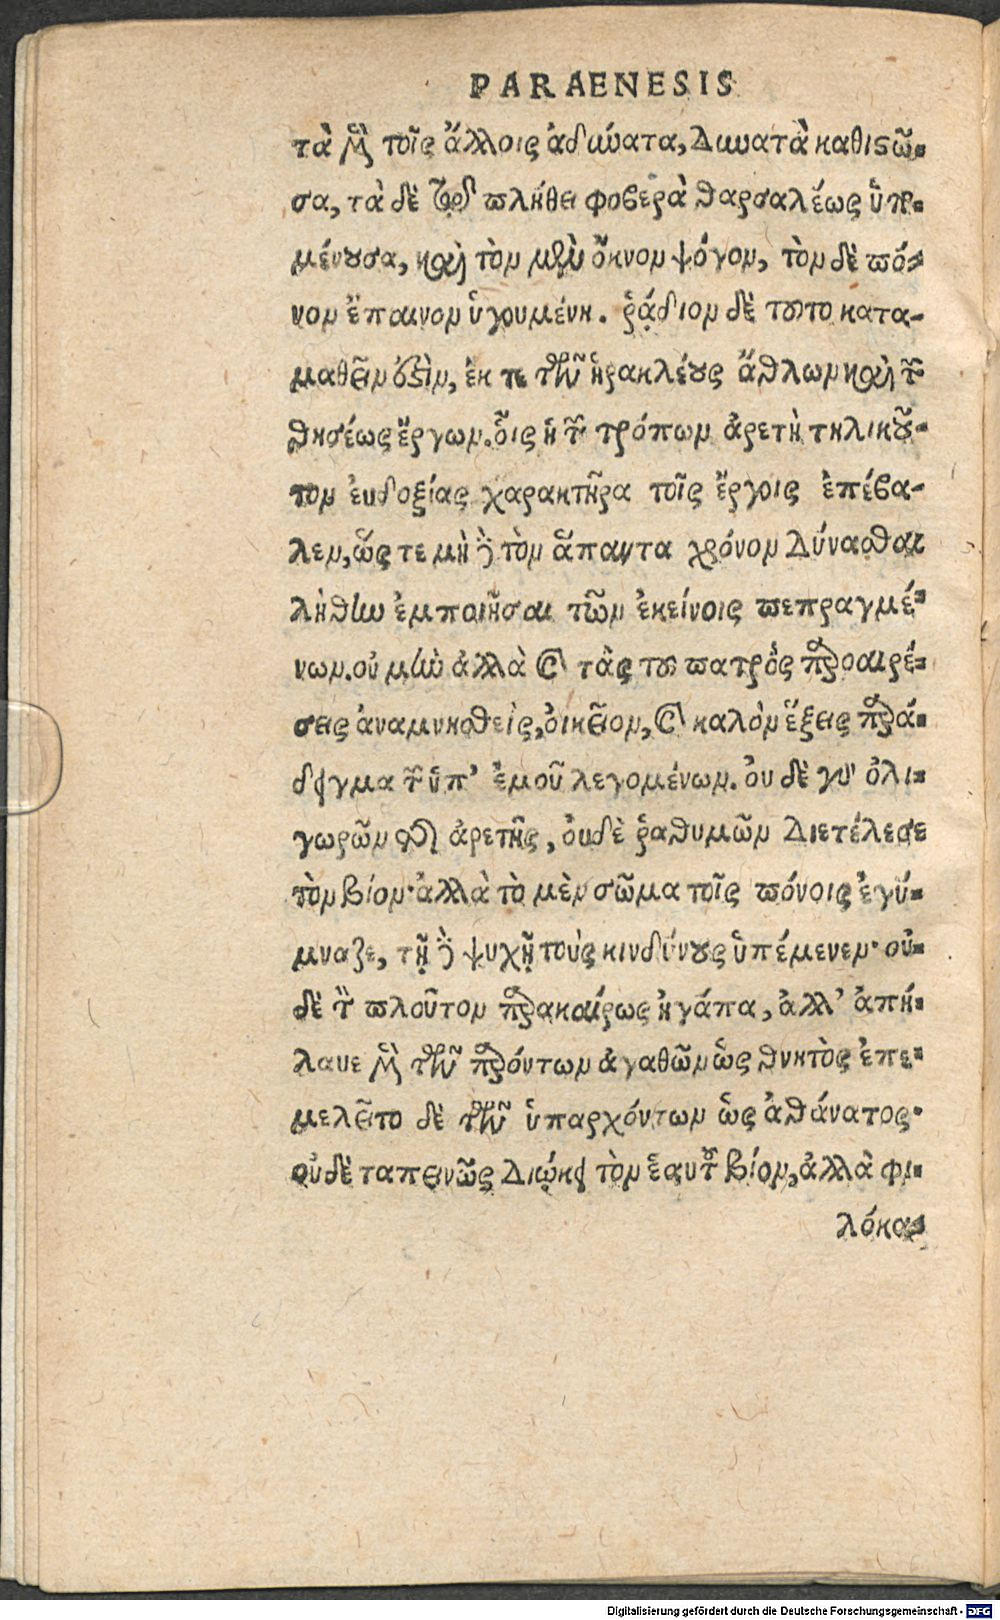 PARAENESIS
τὰ μὲν τοῖς ἄλλοις ἀδύνατα, δυνατὰ καθιστῶ-
σα, τὰ δὲ τῷ πλήθει φοβερὰ θαρσαλέως ὑπο-
μένουσα, καὶ τὸν μὲν ὄκνον ψόγον, τὸν δὲ πό-
νον ἔπαινον ἡγουμένη. ῥᾴδιον δὲ τοῦτο κατα-
μαθεῖν ἐστὶν, ἔκ τε τῶν ἡρακλέους ἄθλων καὶ τῶν
θησέως ἔργων. οἷς ἡ τῶν τρόπων ἀρετὴ τηλικοῦ-
τον εὐδοξίας χαρακτῆρα τοῖς ἔργοις ἐπέβα-
λεν, ὥς τε μὴ δὲ τὸν ἅπαντα χρόνον δύνασθαι
λήθην ἐμποιῆσαι τῶν ἐκείνοις πεπραγμέ-
νων. οὐ μὴν ἀλλὰ καὶ τὰς τοῦ πατρὸς προαιρέ-
σεις ἀναμνησθεὶς, οἰκεῖον, καὶ καλὸν ἕξεις παρά-
δειγμα τῶν ὑπ' ἐμοῦ λεγομένων. οὐ δὲ γὰρ ὀλι-
γωρῶν τῆς ἀρετῆς, οὐδὲ ῥαθυμῶν διετέλεσε
τὸν βίον· ἀλλὰ τὸ μὲν σῶμα τοῖς πόνοις ἐγύ-
μναζε, τῇ δὲ ψυχῇ τοὺς κινδύνους ὑπέμενεν· οὐ-
δὲ τὸν πλοῦτον παρακαίρως ἠγάπα, ἀλλ' ἀπή-
λαυε μὲν τῶν παρόντων ἀγαθῶν ὡς θνητὸς ἐπε-
μελεῖτο δὲ τῶν ὑπαρχόντων ὡς ἀθάνατος·
οὐδὲ ταπεινῶς διῴκει τὸν ἑαυτοῦ βίον, ἀλλὰ φι-
λόκα-
Digitalisierung gefördert durch die Deutsche Forschungsgemeinschaft - DFG